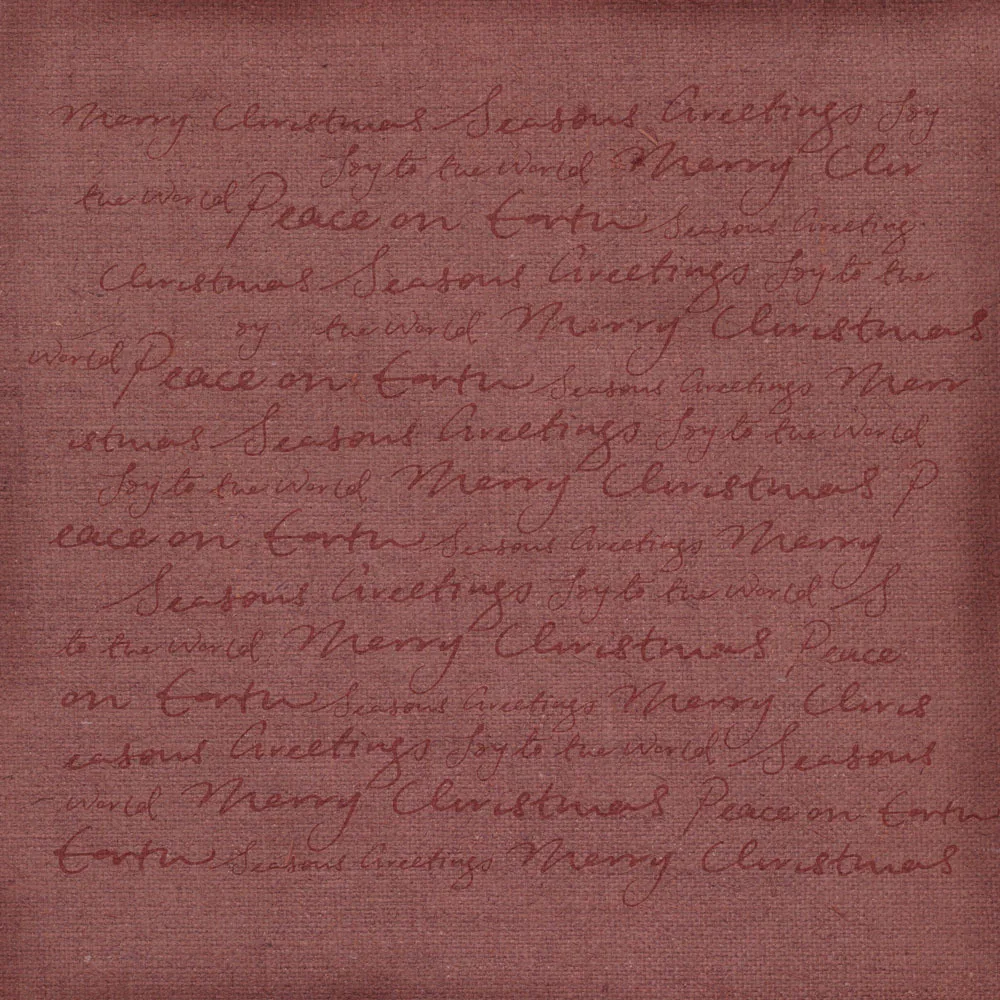 Merry Christmas Seasons Greetings Joy
Joy to the World Merry Chr
the World Peace on Earth Seasons Greeting
Christmas Seasons Greetings Joy to the
oy the World Merry Christmas
World Peace on Earth Seasons Greetings Merr
istmas Seasons Greetings Joy to the World
Joy to the World Merry Christmas P
eace on Earth Seasons Greetings Merry
Seasons Greetings Joy to the World S
to the World Merry Christmas Peace
on Earth Seasons Greetings Merry Chris
easons Greetings Joy to the World Seasons
World Merry Christmas Peace on Earth
Earth Seasons Greetings Merry Christmas